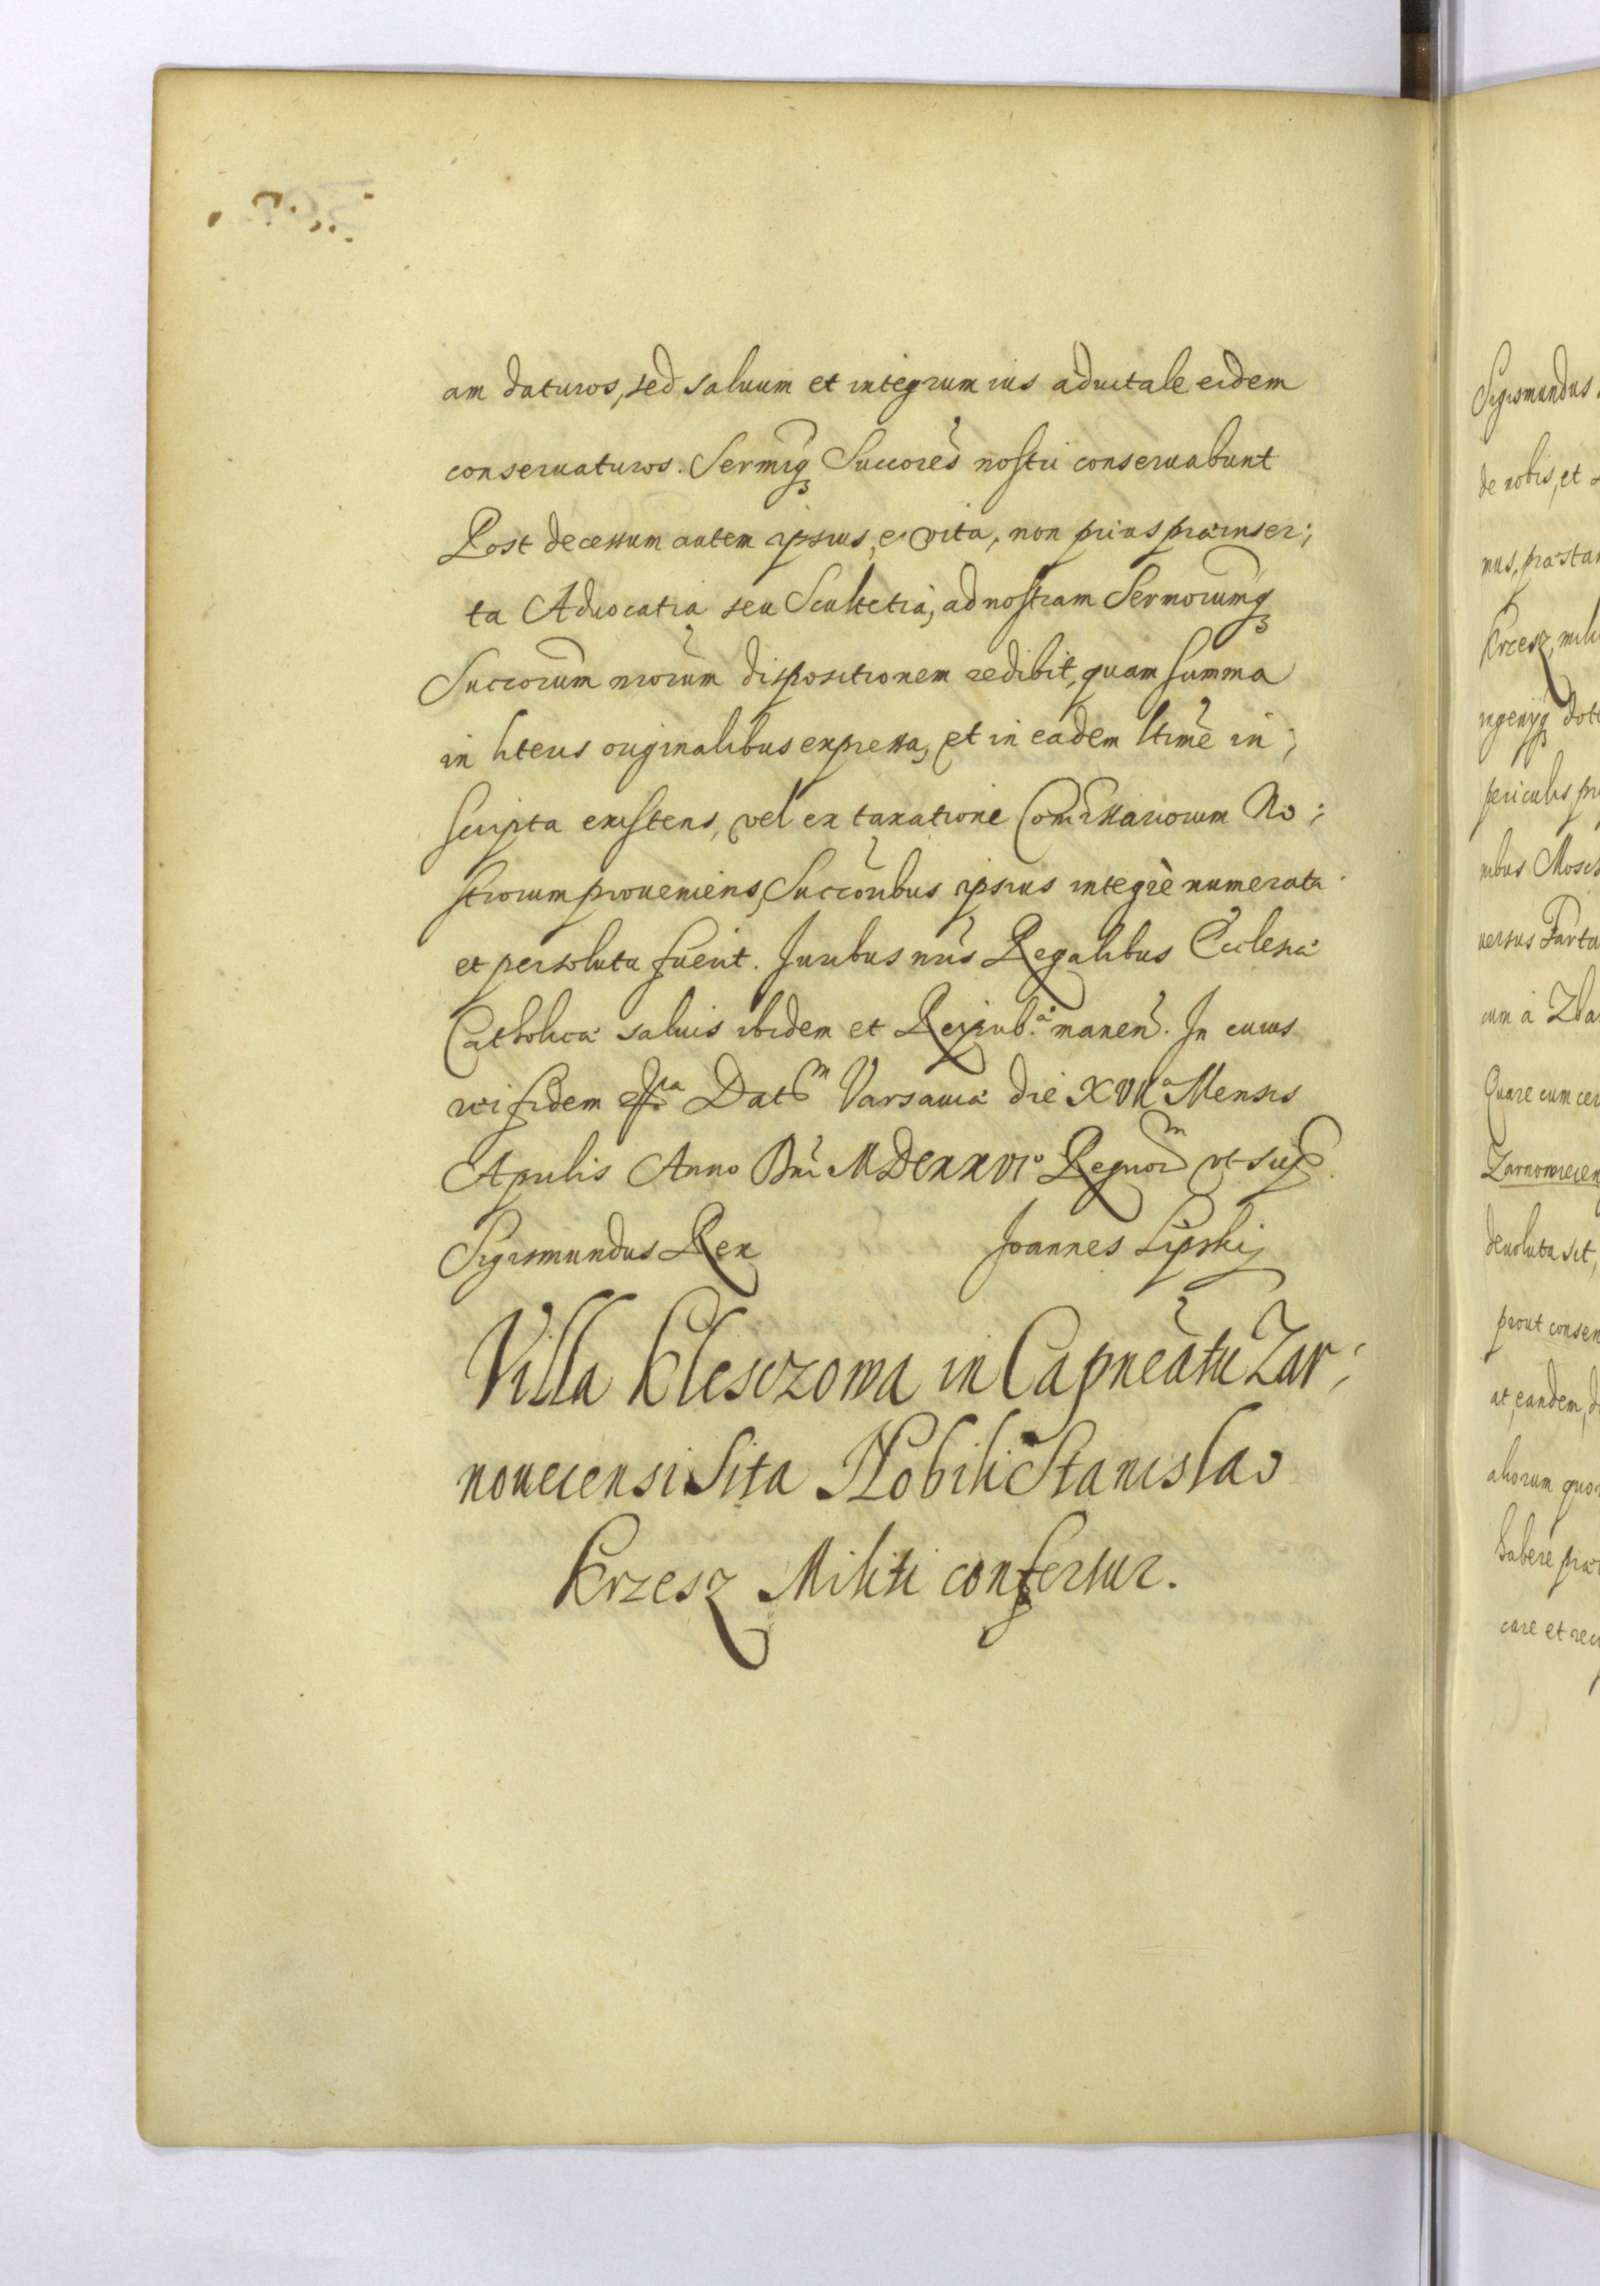 am daturos, sed saluum et integrum ius aduitale eidem
conseruaturos. Sermiq₃ Succores nostri conseruabunt
Post decessum autem ipsius, e vita, non prius præinser;
ta Aduocatia seu Scultetia, ad nostram Sermorumq₃
Succorum nrorum dispositionem redibit, quam summa
in literis originalibus expressa, et in eadem ltime in;
scripta existens, vel ex taxatione Comissariorum No;
strorum proueniens, Succoribus ipsius integrè numerata
et persoluta fuerit. Juribus nris Regalibus Ecclesiæ
Catholicæ saluis ibidem et Reipub.æ manen. In cuius
rei fidem Datm Varsauiæ die XVIIa Mensis
Aprilis Anno Dni MDCXXVIo Regnorm vt sup.
Sigismundus Rex Joannes Lipskij
Villa Klesczowa in Capneatu Zar;
nouecensi Sita Nobili Stanislao
Krzesz Militi confertur.
Sigismundus
de nobis, et
nus, præstan
Krzesz, mili
ingenijq₃ dot
periculis pr
nibus Mosc
uersus Tarta
cum à Zba
Quare cum cer
Zarnowiecen
deuoluta sit,
prout consen
at, eandem, d
aliorum quor
habere præ
care et rec